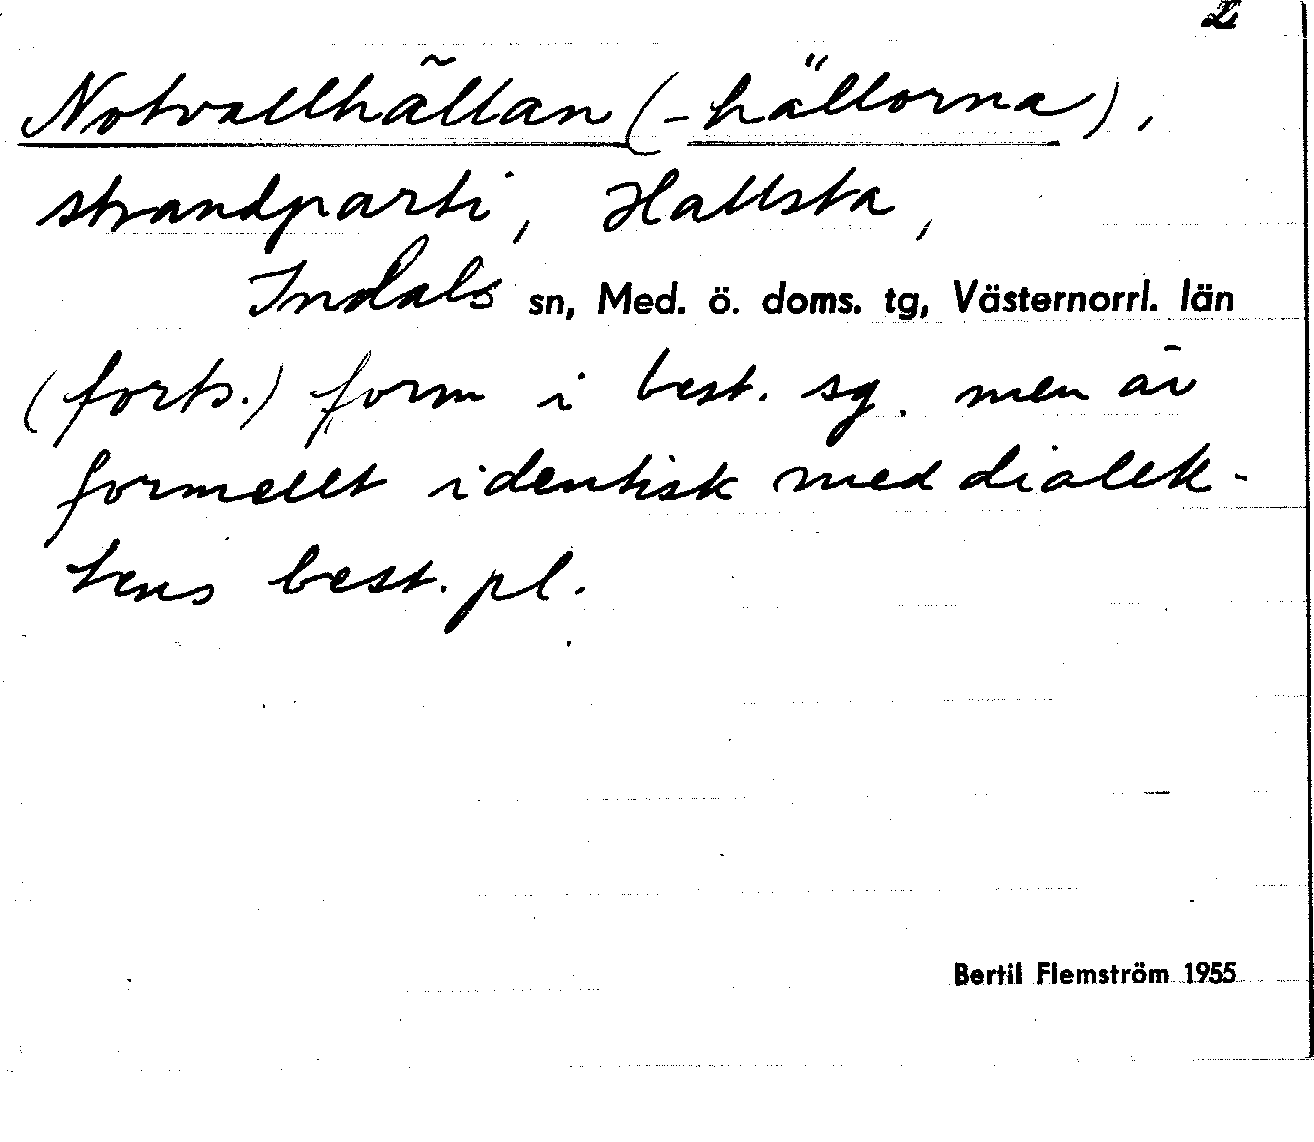 2
Notvallhällan (-hällorna),
strandparti, Hallsta,
Indals sn, Med. ö. doms. tg, Västernorrl. län
(forts.) form i best. sg. men är
formellt identisk med dialek-
tens best. pl.
Bertil Flemström 1955